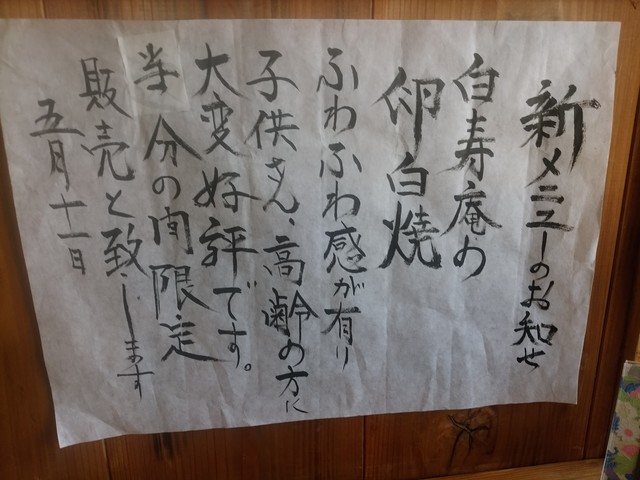 新メニューのお知せ
白寿庵の
卵白焼
ふわふわ感が有り
子供さん、高齢の方に
大変好評です。
当分の間限定
販売と致します
五月十一日